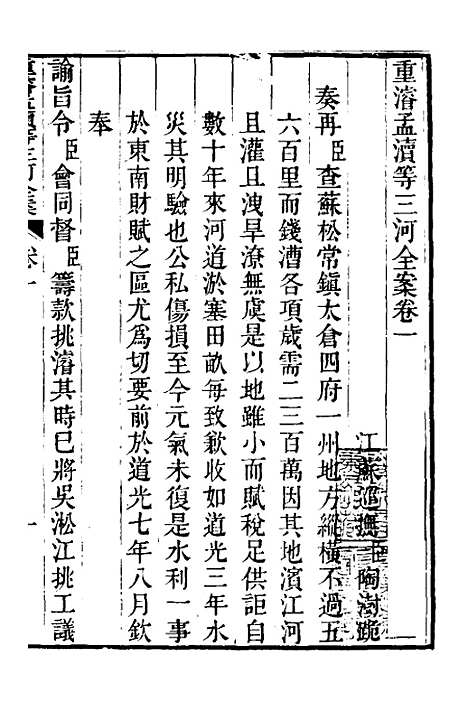 重濬孟瀆等三河全案卷一
江蘇巡撫臣陶澍跪
奏再臣查蘇松常鎮太倉四府一州地方縱橫不過五
六百里而錢漕各項歲需二三百萬因其地濱江河
且灌且洩旱潦無虞是以地雖小而賦稅足供詎自
數十年來河道淤塞田畝每致歉收如道光三年水
災其明驗也公私傷損至今元氣未復是水利一事
於東南財賦之區尤爲切要前於道光七年八月欽
奉
諭旨令臣會同督臣籌款挑濬其時已將吳淞江挑工議
重濬孟瀆等三河全案 卷一 一